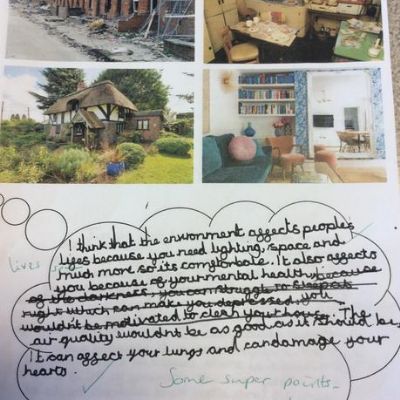 I think that the environment affects people's
lifes because you need lighting, space and
lives
much more so its comfortable. It also affects
you because of your mental health because
of the darkness, you can struggle to sleep at
night which can make you depressed. You
wouldn't be motivated to clean your house. The
air quality wouldn't be as good as it should be,
It can affect your lungs and can damage your
hearts.
Some super points-